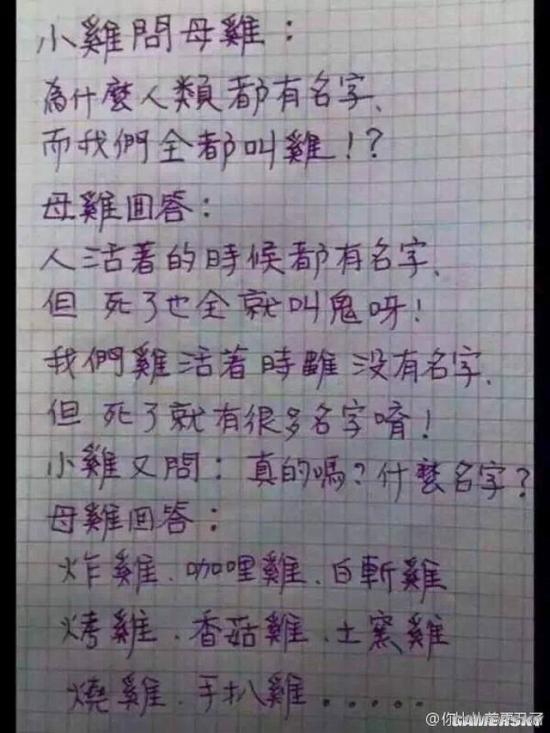 小雞問母雞：
為什麼人類都有名字、
而我們全都叫雞！？
母雞回答：
人活著的時候都有名字、
但死了也全就叫鬼呀！
我們雞活著時雖沒有名字、
但死了就有很多名字唷！
小雞又問：真的嗎？什麼名字？
母雞回答：
炸雞、咖哩雞、白斬雞
烤雞、香菇雞、土窯雞
燒雞、手扒雞......
GAMERSKY